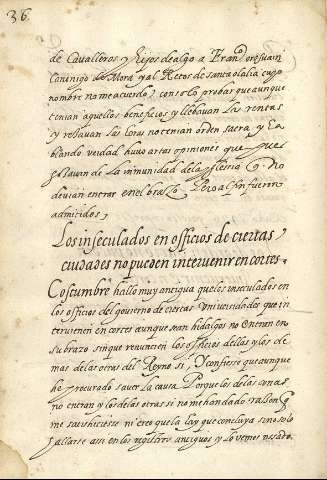 36.
de Cavalleros y hijos dealgo a Franco. oresuain
Canonigo de Mora y al Retor de santa olalia cuyo
nombre no me acuerdo) con solo probar que aunque
tenian aquellos beneficios y llebavan las rentas
y reçavan las horas no tenian orden sacra, y ha
blando verdad huvo artas opiniones que, pues
goçavan de la inmunidad de la yglesia no
devian entrar en el braço Pero al fin fueron
admitidos,
Los inseculados en officios de ciertas
ciudades no pueden intervenir en cortes.
Costumbre hallo muy antigua que los inseculados en
los officios del govierno de ciertas universidades que in
tervienen en cortes aunque sean hidalgos no entren en
su brazo sin que renuncien los officios dellas y los de
mas de las otras del Reyno si, y confiesso que aunque
he procurado saver la causa Porque los de las unas
no entran y los de las otras si no me han dado raçon q
me satisficiesse ni creo que la hay que concluya sino solo
hallarse assi en los registros antiguos y lo vemos usado.